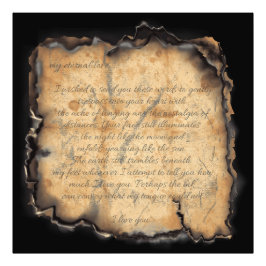 my eternal love,
I wished to send you these words to gently
into your heart with
the ache of longing and the nostalgia of
distances. Your face still illuminates
the night like the moon and
unfolds yearning like the sun.
The earth still trembles beneath
my feet whenever I attempt to tell you how
much I love you. Perhaps the ink
can convey what my tongue could not
I love you